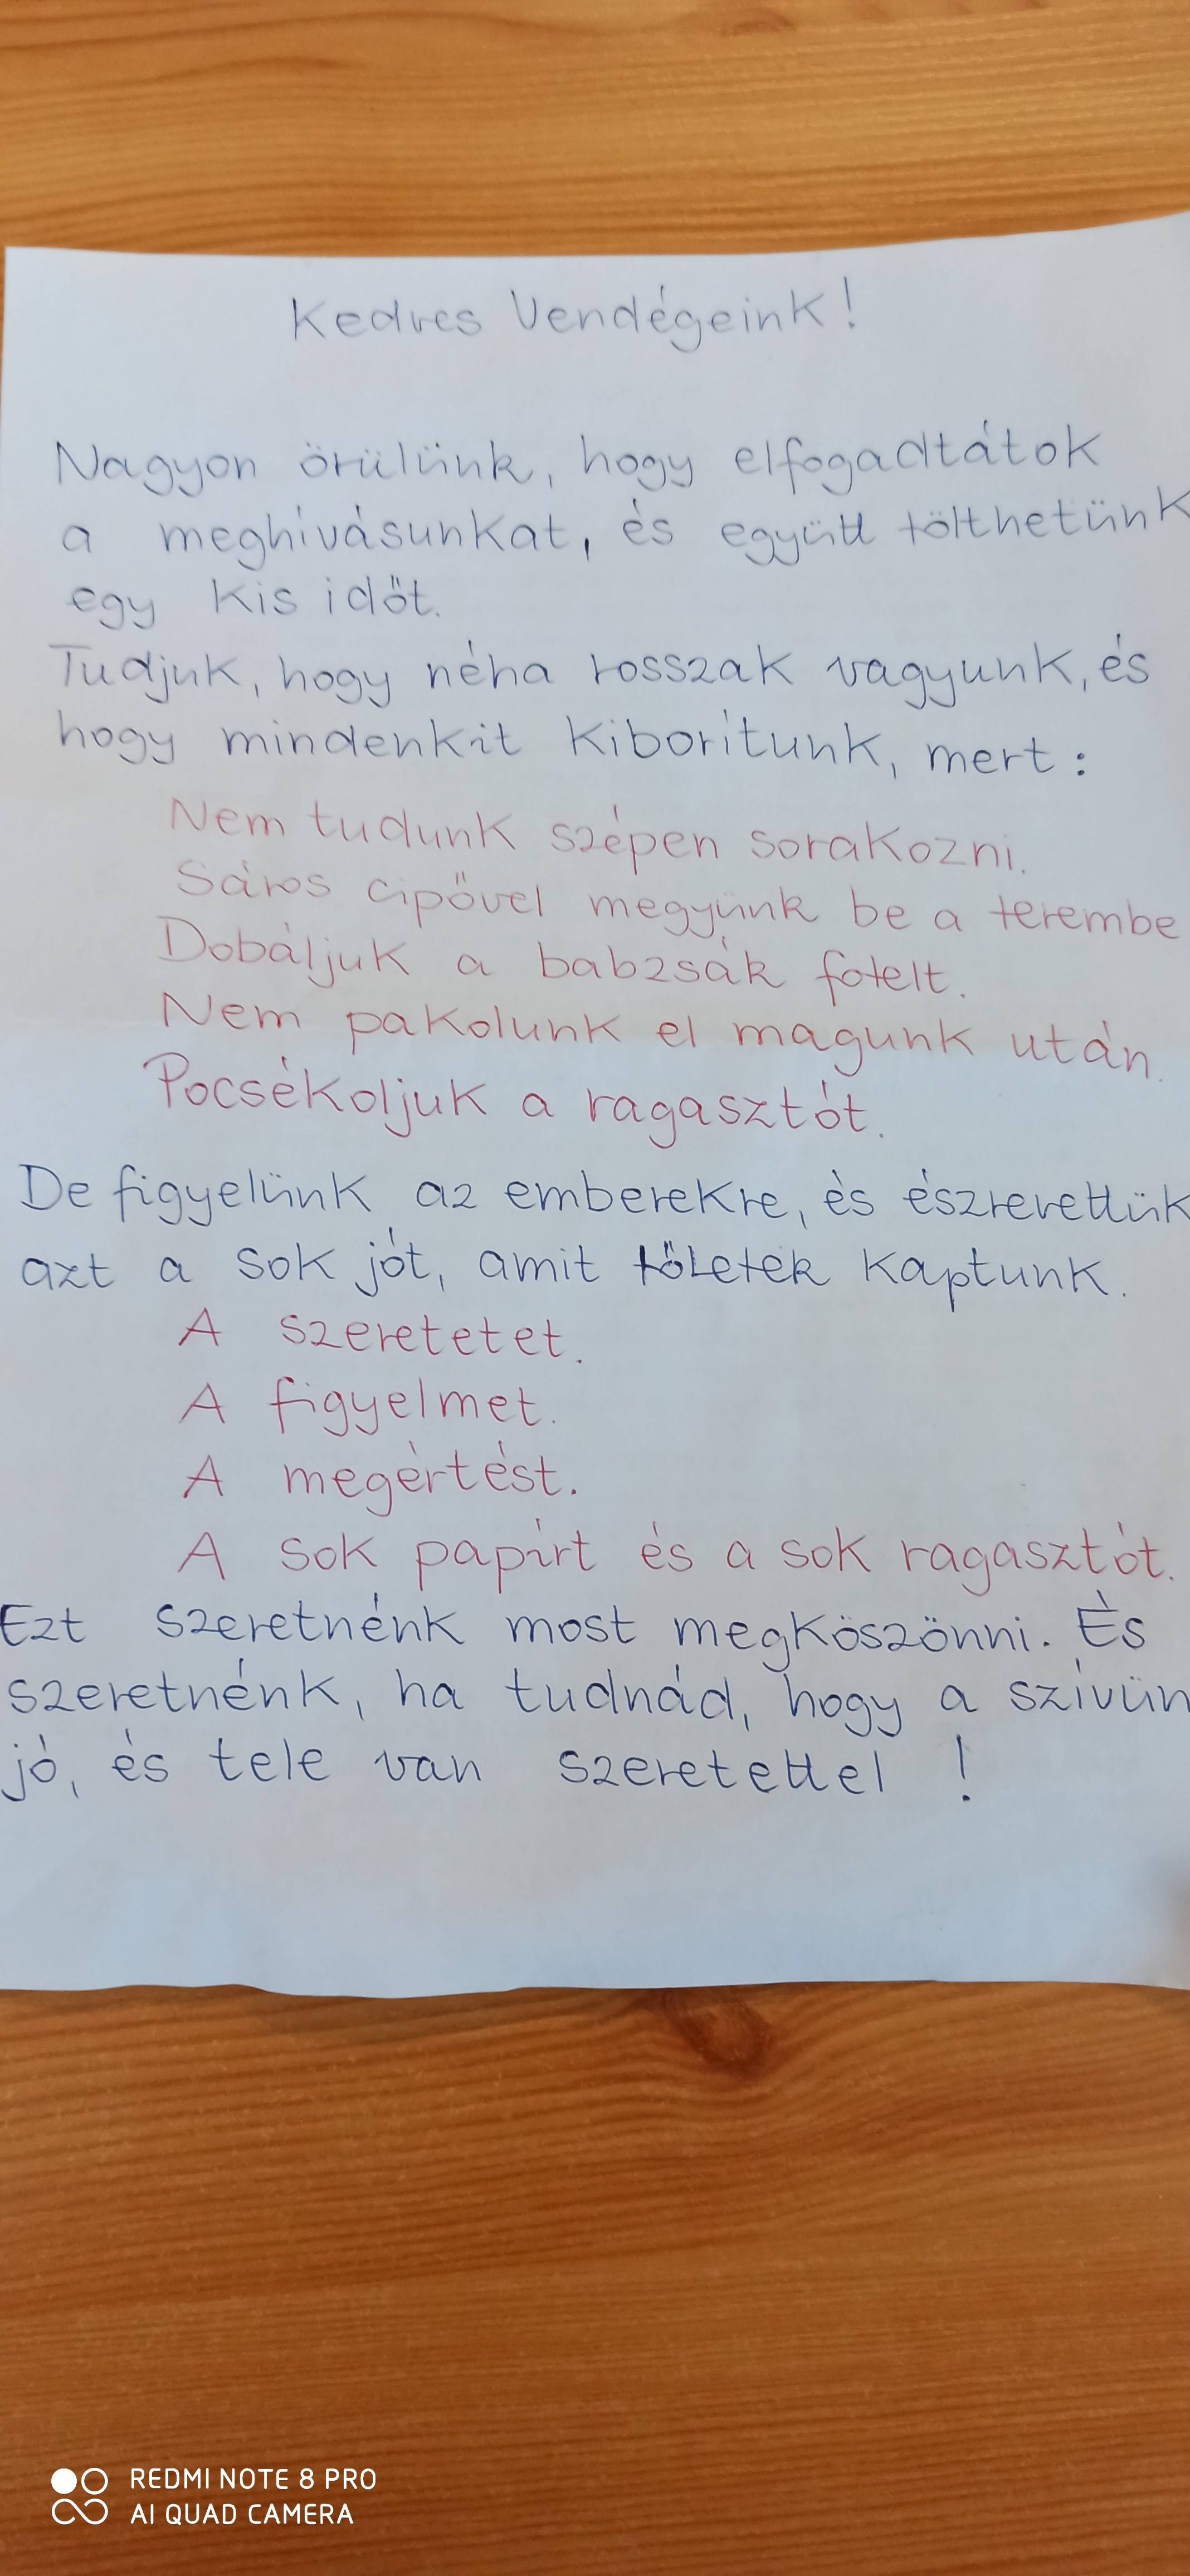 Kedves Vendégeink!
Nagyon örülünk, hogy elfogadtátok
a meghívásunkat, és együtt tölthetünk
egy kis időt.
Tudjuk, hogy néha rosszak vagyunk, és
hogy mindenkit kiborítunk, mert:
Nem tudunk szépen sorakozni.
Sáros cipővel megyünk be a terembe
Dobáljuk a babzsák fotelt.
Nem pakolunk el magunk után.
Pocsékoljuk a ragasztót.
De figyelünk az emberekre, és észrevettük
azt a sok jót, amit tőletek kaptunk.
A szeretetet.
A figyelmet.
A megértést.
A sok papírt és a sok ragasztót.
Ezt szeretnénk most megköszönni. És
szeretnénk, ha tudnád, hogy a szívün
jó, és tele van szeretettel!
REDMI NOTE 8 PRO
AI QUAD CAMERA